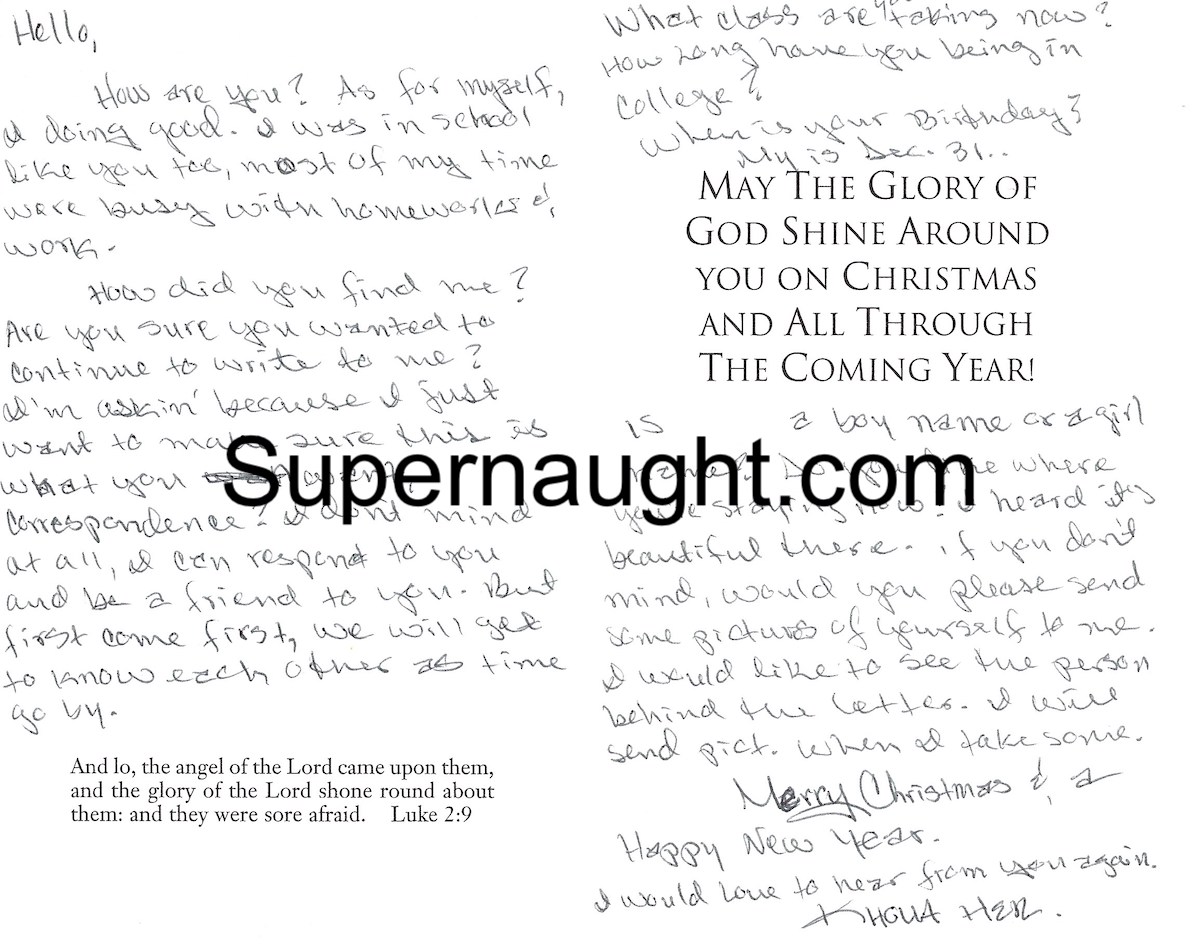 Hello,
How are you? As for myself,
I doing good. I was in school
like you too, most of my time
were busy with homeworks &
work.
How did you find me?
Are you sure you wanted to
continue to write to me?
I'm askin' because I just
want to make sure this is
what you want,
correspondence? I don't mind
at all, I can respond to you
and be a friend to you. But
first come first, we will get
to know each other as time
go by.
And lo, the angel of the Lord came upon them,
and the glory of the Lord shone round about
them: and they were sore afraid. Luke 2:9
What class are you taking now?
How Long have you being in
College?
When is your Birthday?
My is Dec. 31..
MAY THE GLORY OF
GOD SHINE AROUND
YOU ON CHRISTMAS
AND ALL THROUGH
THE COMING YEAR!
is a boy name or a girl
name? Do you like where
you're staying now? I heard it's
beautiful there. if you don't
mind, would you please send
some pictures of yourself to me.
I would like to see the person
behind the letter. I will
send pict. when I take some.
Merry Christmas & a
Happy New Year.
I would love to hear from you again.
KHOUA HER.
Supernaught.com